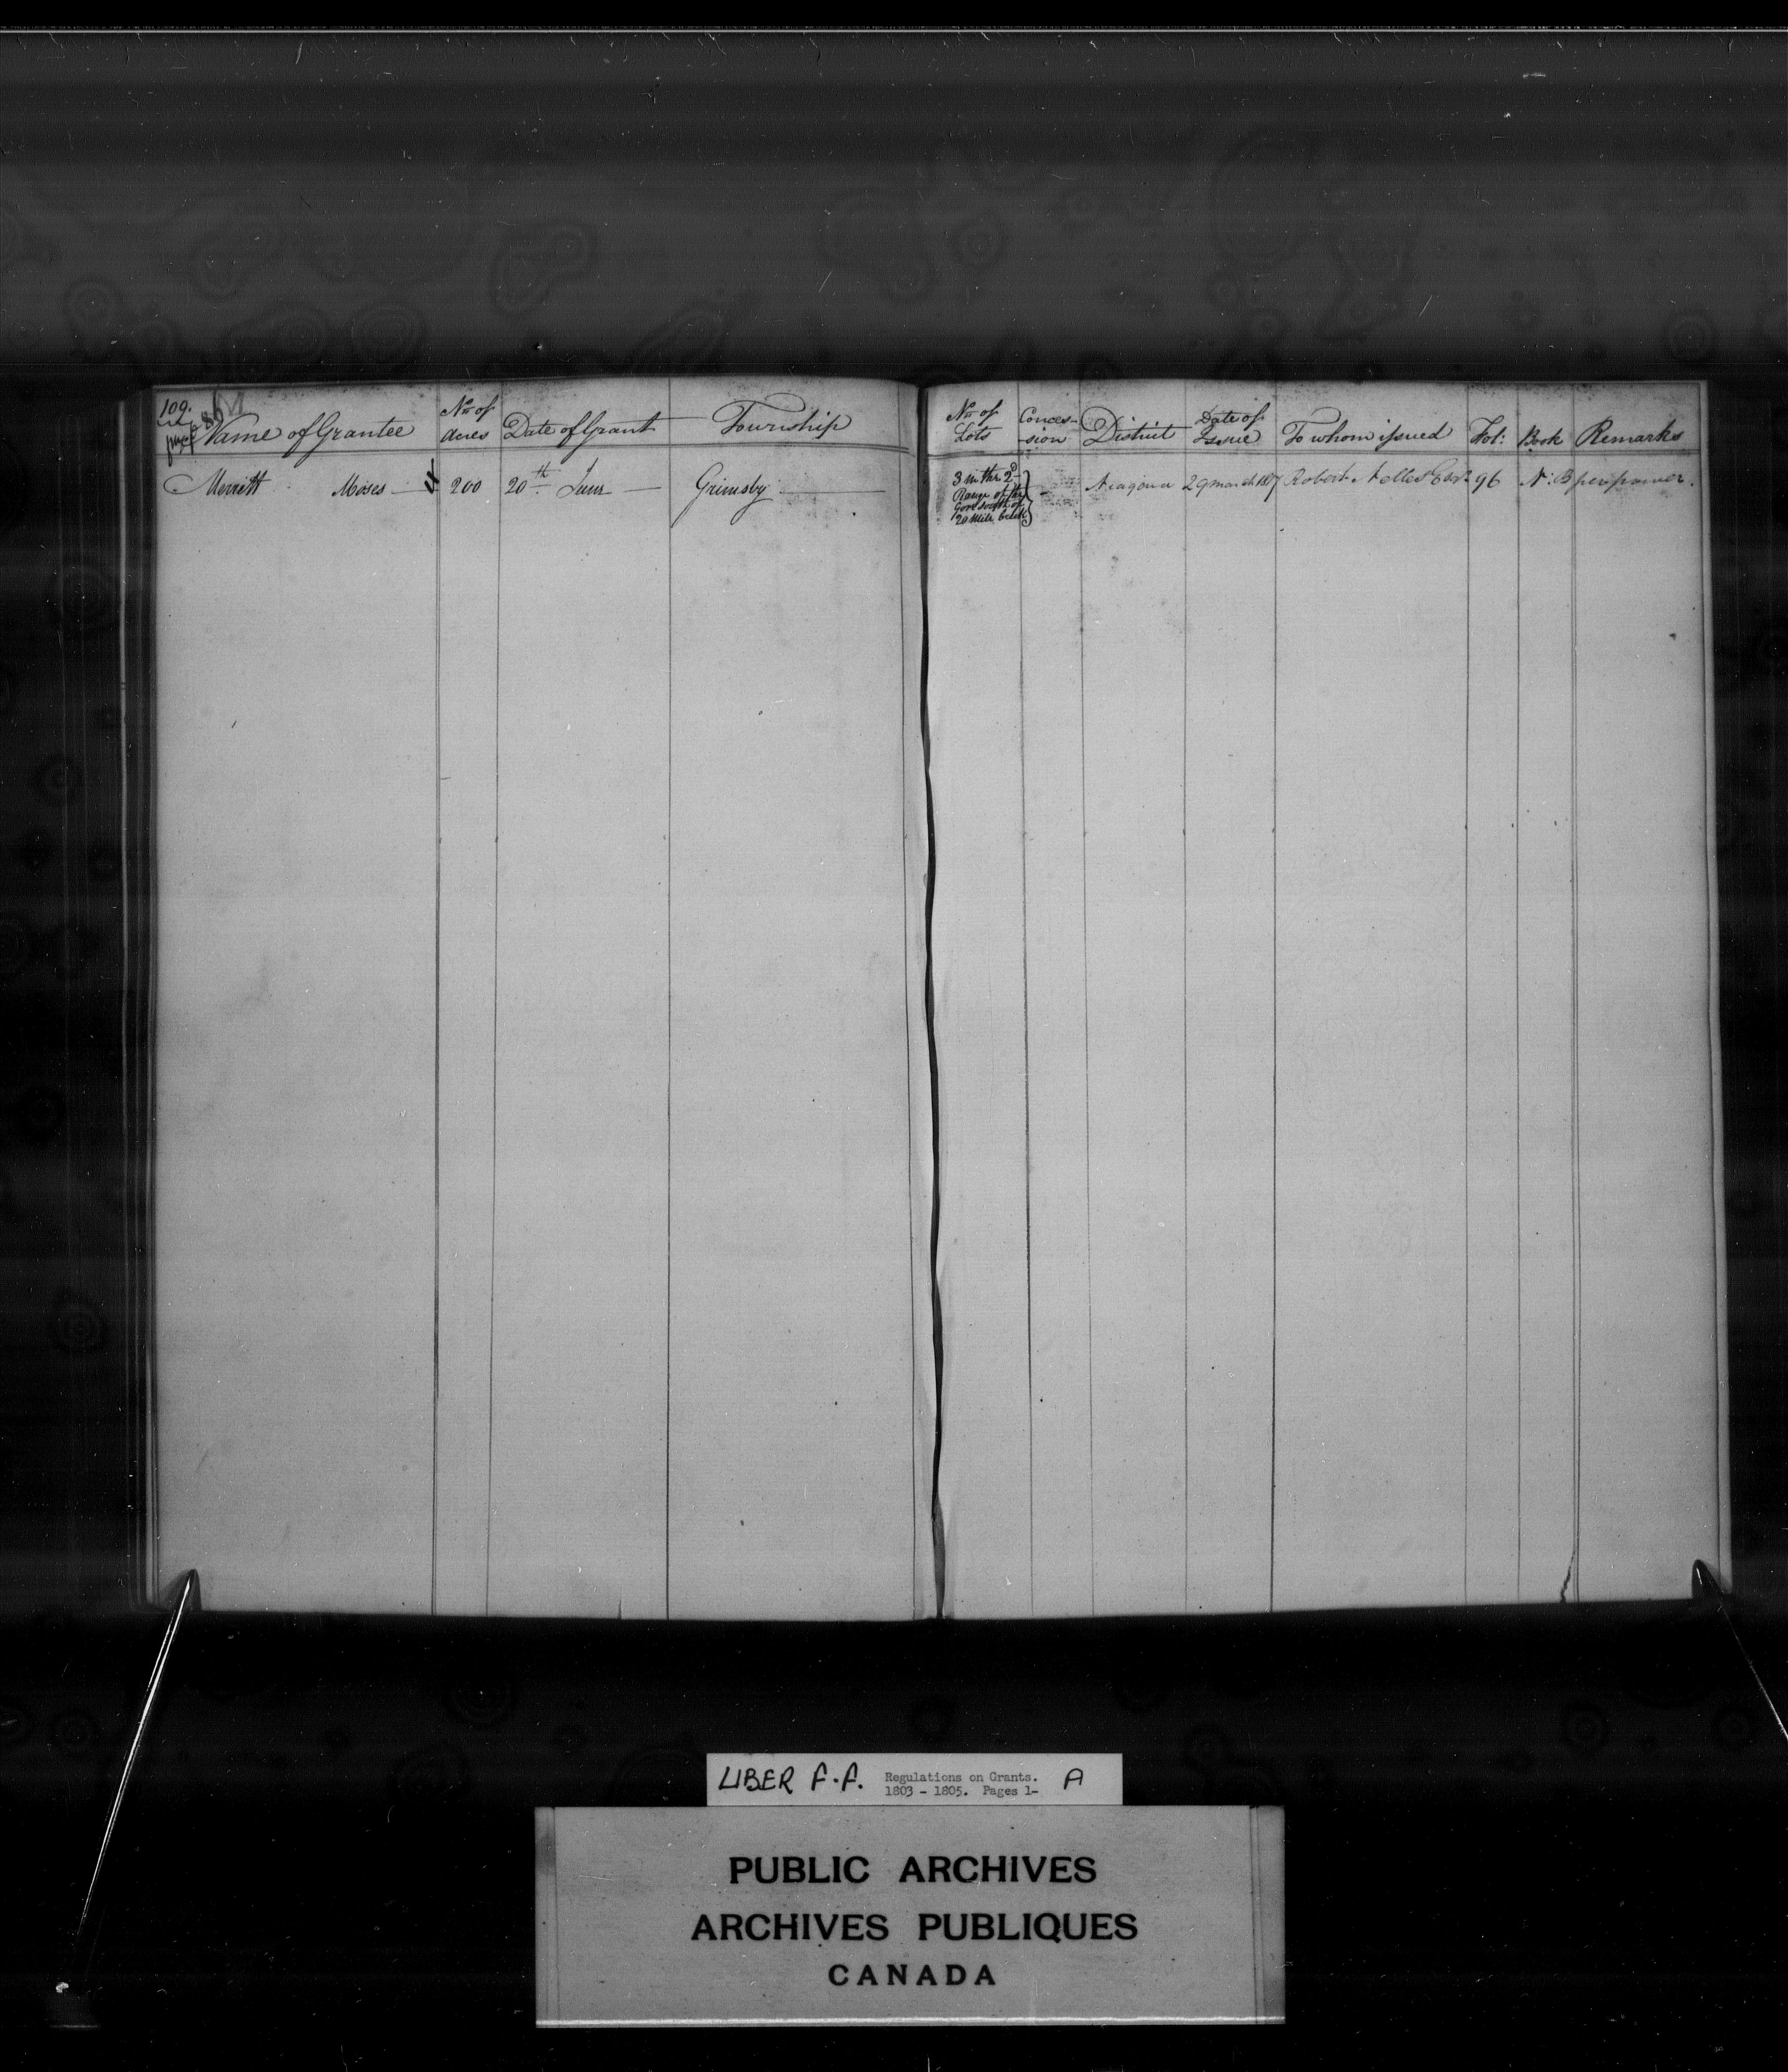 109.
M
Name of Grantee
No. of Acres
Date of Grant
Township
No. of Lots
Conces-sion
District
Date of Issue
To whom issued
Fol:
Book
Remarks
Merritt Moses
200
20th June
Grimsby
3 in the 2d
Range of the
Gore South of
20 Mile Creek
Niagara
29 March 1807
Robert Nelles Esqr
96
N: B
per power.
LIBER F.F. Regulations on Grants. A
1803 - 1805. Pages 1-
PUBLIC ARCHIVES
ARCHIVES PUBLIQUES
CANADA